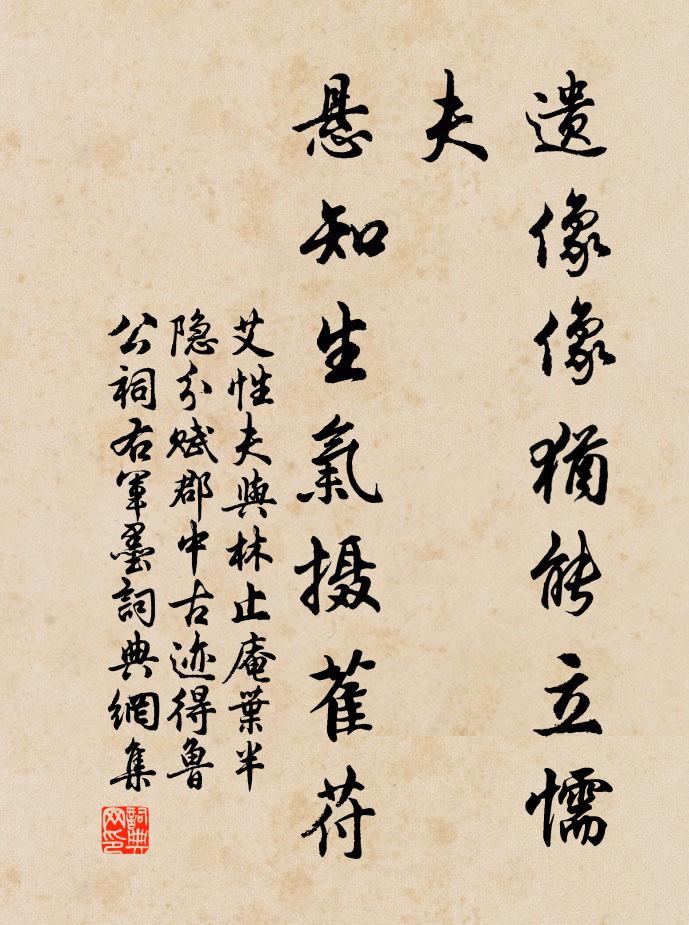 遗像像犹能立懦
夫
悬知生氣摄萑苻
艾性夫與林止庵葉半
隐分赋郡中古迹得鲁
公祠右軍墨詞典網集
詞典网印